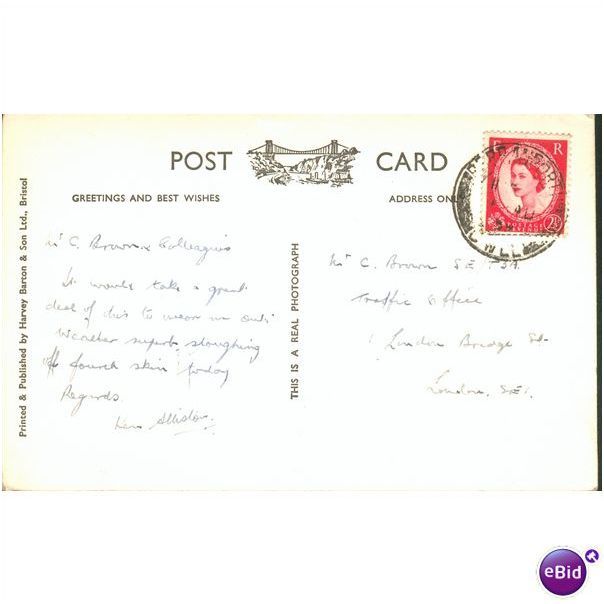 POST CARD
GREETINGS AND BEST WISHES
ADDRESS ONLY
Printed & Published by Harvey Barton & Son Ltd., Bristol
THIS IS A REAL PHOTOGRAPH
Mr C. Brown & Colleagues
It would take a great
deal of this to wear me out.
Weather superb. Sloughing
off fourth skin today
Regards.
Ken
Mr C. Brown SE
Traffic Office
London Bridge St.
London. SE1.
E R
2½
POSTAGE REVENUE
eBid